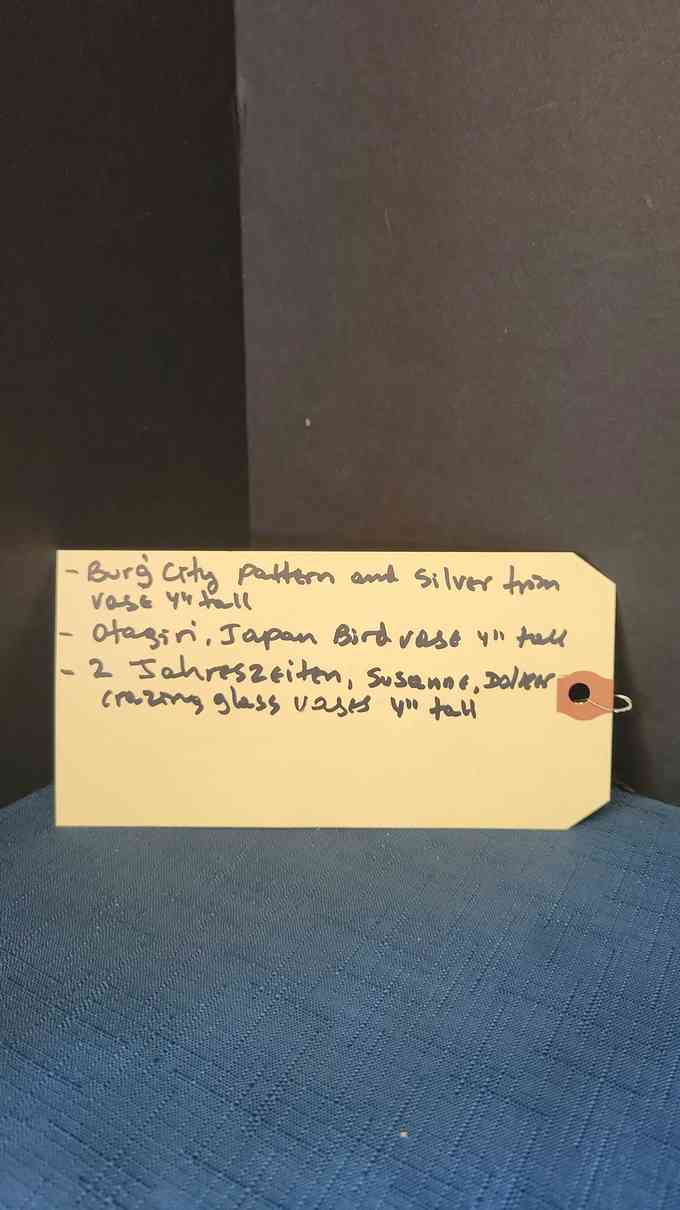 - Burg City pattern and silver trim
vase 4" tall
- Otagiri, Japan Bird vase 4" tall
- 2 Jahreszeiten, Susanne,
crazing glass vases 4" tall